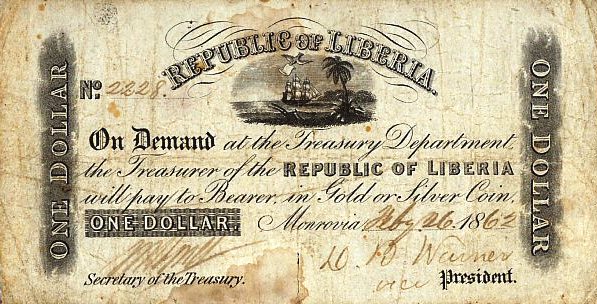 REPUBLIC OF LIBERIA.
No. 2228.
ONE DOLLAR
ONE DOLLAR
On Demand at the Treasury Department
the Treasurer of the REPUBLIC OF LIBERIA
will pay to Bearer, in Gold or Silver Coin,
ONE DOLLAR. Monrovia Feby 26 1862
D. B. Warner
Secretary of the Treasury. vice President.